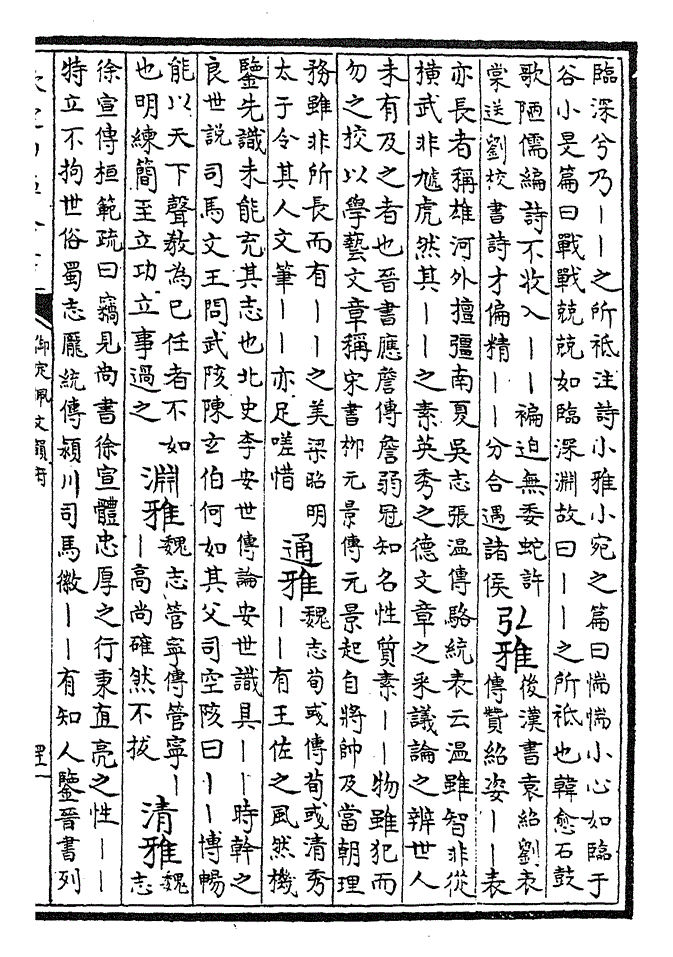 臨深兮乃——之所祗注詩小雅小宛之篇曰惴惴小心如臨于
谷小旻篇曰戰戰兢兢如臨深淵故曰——之所祗也韓愈石鼓
歌陋儒編詩不收入——褊迫無委蛇許
棠送劉校書詩才偏精——分合遇諸侯
弘雅
後漢書袁紹劉表
傳贊紹姿——表
亦長者稱雄河外擅彊南夏吳志張温傳駱統表云温雖智非從
橫武非虓虎然其——之素英秀之德文章之采議論之辨世人
未有及之者也晉書應詹傳詹弱冠知名性質素——物雖犯而
勿之校以學藝文章稱宋書柳元景傳元景起自將帥及當朝理
務雖非所長而有——之美梁昭明
太子令其人文筆——亦足嗟惜
通雅
魏志荀彧傳荀彧清秀
——有王佐之風然機
鑒先識未能充其志也北史李安世傳論安世識具——時幹之
良世説司馬文王問武陔陳玄伯何如其父司空陔曰——博暢
能以天下聲教為已任者不如
也明練簡至立功立事過之
淵雅
魏志管寧傳管寧—
—高尚確然不拔
清雅
魏
志
徐宣傳桓範疏曰竊見尚書徐宣體忠厚之行秉直亮之性——
特立不拘世俗蜀志龐統傳潁川司馬徽——有知人鑒晉書列
御定佩文韻府